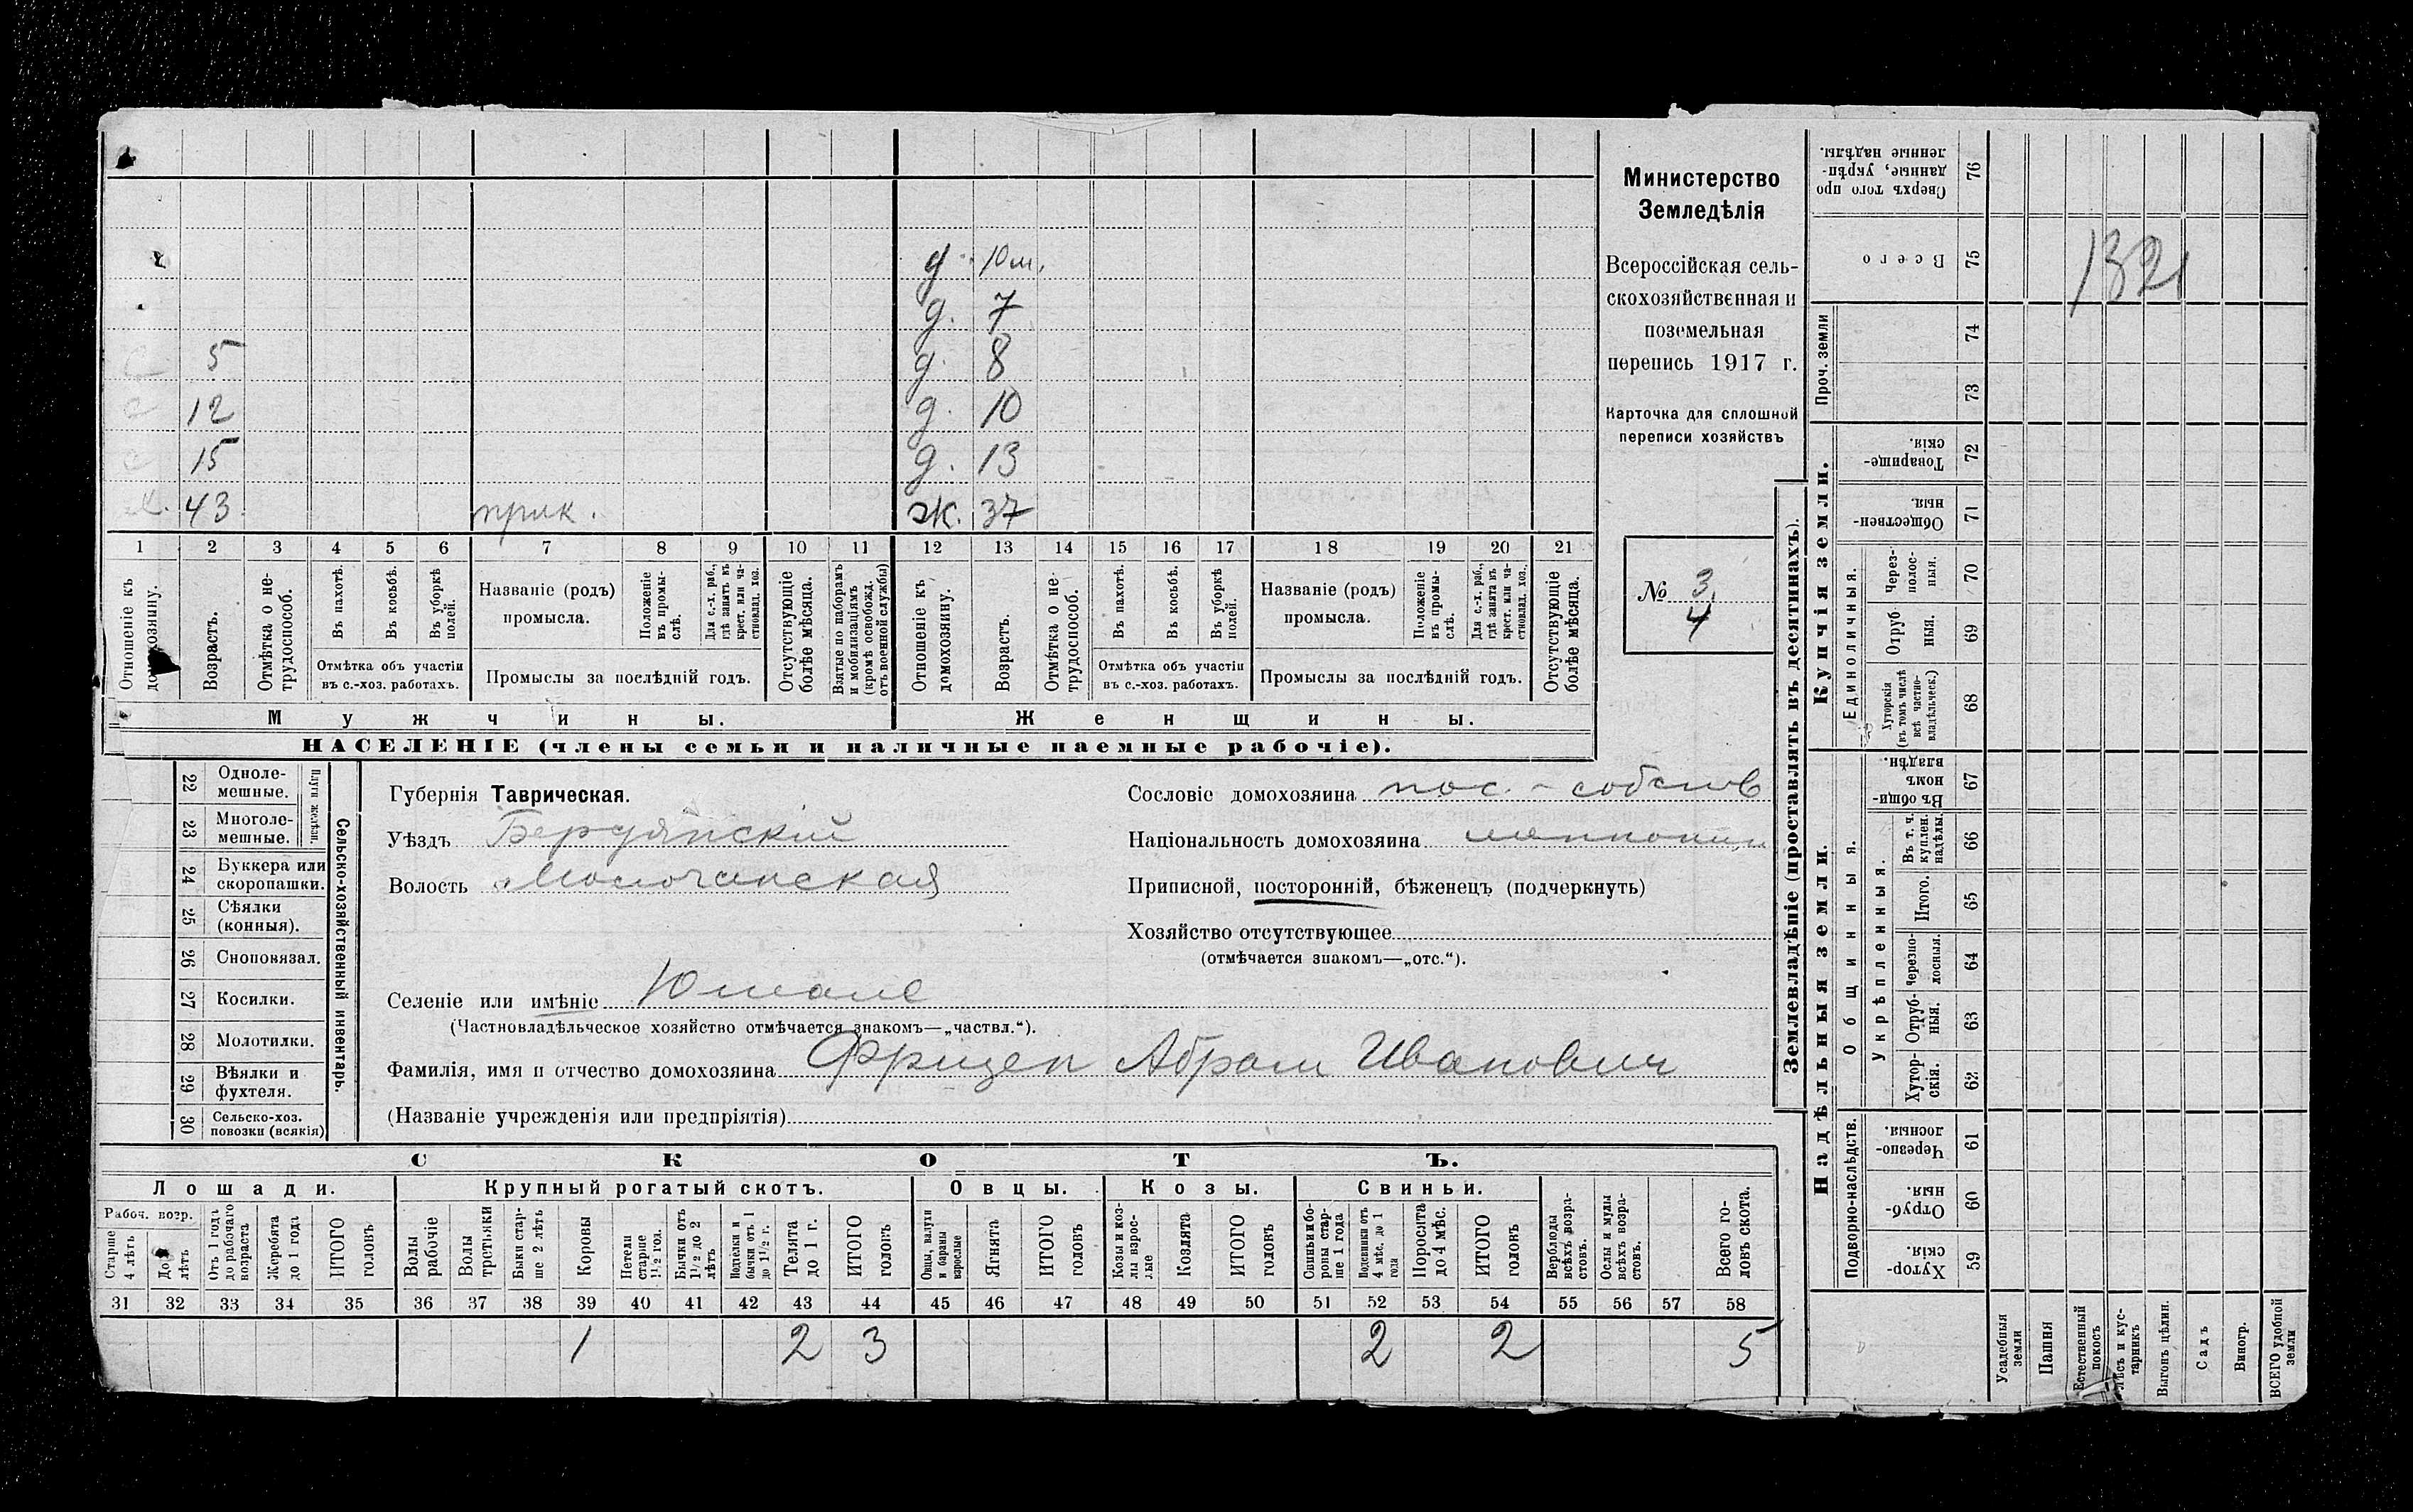 д. 10 м.
д. 7
с 5 д. 8
с 12 д. 10
с 15 д. 13
х. 43 прик. ж. 37
1 2 3 4 5 6 7 8 9 10 11 12 13 14 15 16 17 18 19 20 21
Отношеніе къ домохозяину.
Возрастъ.
Отмѣтка о нетрудоспособ.
Въ пахотѣ.
Въ косьбѣ.
Въ уборкѣ полей.
Отмѣтка объ участіи
въ с.-хоз. работахъ.
Названіе (родъ)
промысла.
Положеніе въ промыслѣ.
Для с.-х. раб., гдѣ занятъ въ крест. или частновлад. хоз.
Промыслы за послѣдній годъ.
Отсутствующіе болѣе мѣсяца.
Взятые по наборамъ и мобилизаціямъ (кромѣ освобожд. отъ военной службы)
Отношеніе къ домохозяину.
Возрастъ.
Отмѣтка о нетрудоспособ.
Въ пахотѣ.
Въ косьбѣ.
Въ уборкѣ полей.
Отмѣтка объ участіи
въ с.-хоз. работахъ.
Названіе (родъ)
промысла.
Положеніе въ промыслѣ.
Для с.-х. раб., гдѣ занята въ крест. или частновлад. хоз.
Промыслы за послѣдній годъ.
Отсутствующіе болѣе мѣсяца.
Мужчины.
Женщины.
НАСЕЛЕНІЕ (члены семьи и наличные наемные рабочіе).
Министерство
Земледѣлія
Всероссійская сель-
скохозяйственная и
поземельная
перепись 1917 г.
Карточка для сплошной
переписи хозяйствъ
№ 3
4
22 Одноле-
мешные.
23 Многоле-
мешные.
Плуги желѣзн.
24 Буккера или
скоропашки.
25 Сѣялки
(конныя).
26 Сноповязал.
27 Косилки.
28 Молотилки.
29 Вѣялки и
фухтеля.
30 Сельско-хоз.
повозки (всякія)
Сельско-хозяйственный инвентарь.
Губернія Таврическая.
Уѣздъ Бердянскій
Волость Молочанская
Сословіе домохозяина пос.-собств
Національность домохозяина
Приписной, посторонній, бѣженецъ (подчеркнуть)
Хозяйство отсутствующее
(отмѣчается знакомъ—„отс.“).
Селеніе или имѣніе Юшанле
(Частновладѣльческое хозяйство отмѣчается знакомъ—„частвл.“).
Фамилія, имя и отчество домохозяина Фризен Абрам Иванович
(Названіе учрежденія или предпріятія)
СКОТЪ.
Лошади. Крупный рогатый скотъ. Овцы. Козы. Свиньи.
Рабоч. возр.
Старше 4 лѣтъ
До 4 лѣтъ
Отъ 1 года до рабочаго возраста
Жеребята до 1 года
ИТОГО головъ
Волы рабочіе
Волы третьяки
Быки старше 2 лѣтъ
Коровы
Нетели старше 1½ год.
Бычки отъ 1½ до 2 лѣтъ
Подтелки и бычки отъ 1 до 1½ г.
Телята до 1 г.
ИТОГО головъ
Овцы, валухи и бараны взрослые
Ягнята
ИТОГО головъ
Козы и козлы взрослые
Козлята
ИТОГО головъ
Свиньи и боровы старше 1 года
Подсвинки отъ 4 мѣс. до 1 года
Поросята до 4 мѣс.
ИТОГО головъ
Верблюды всѣхъ возрастовъ.
Ослы и мулы всѣхъ возрастовъ.
Всего головъ скота.
31 32 33 34 35 36 37 38 39 40 41 42 43 44 45 46 47 48 49 50 51 52 53 54 55 56 57 58
1 2 3 2 2 5
Землевладѣніе (проставлять въ десятинахъ).
Надѣльныя земли.
Купчія земли.
Проч. земли
Подворно-наслѣдств.
Общинныя.
Укрѣпленныя.
Единоличныя.
Сверхъ того проданные, укрѣпленные надѣлы. 76
Всего 75
1321
74
73
Товарищескія. 72
Общественныя. 71
Черезполосныя. 70
Отрубныя. 69
Хуторскія (въ томъ числѣ всѣ частновладѣльческ.) 68
Въ общиномъ владѣн. 67
Въ т. ч. куплен. надѣлы. 66
Итого. 65
Черезполосныя. 64
Отрубныя. 63
Хуторскія. 62
Черезполосныя. 61
Отрубныя. 60
Хуторскія. 59
Усадебныя земли
Пашня
Естественный покосъ
Лѣсъ и кустарникъ
Выгонъ цѣлин.
Садъ
Виногр.
ВСЕГО удобной земли